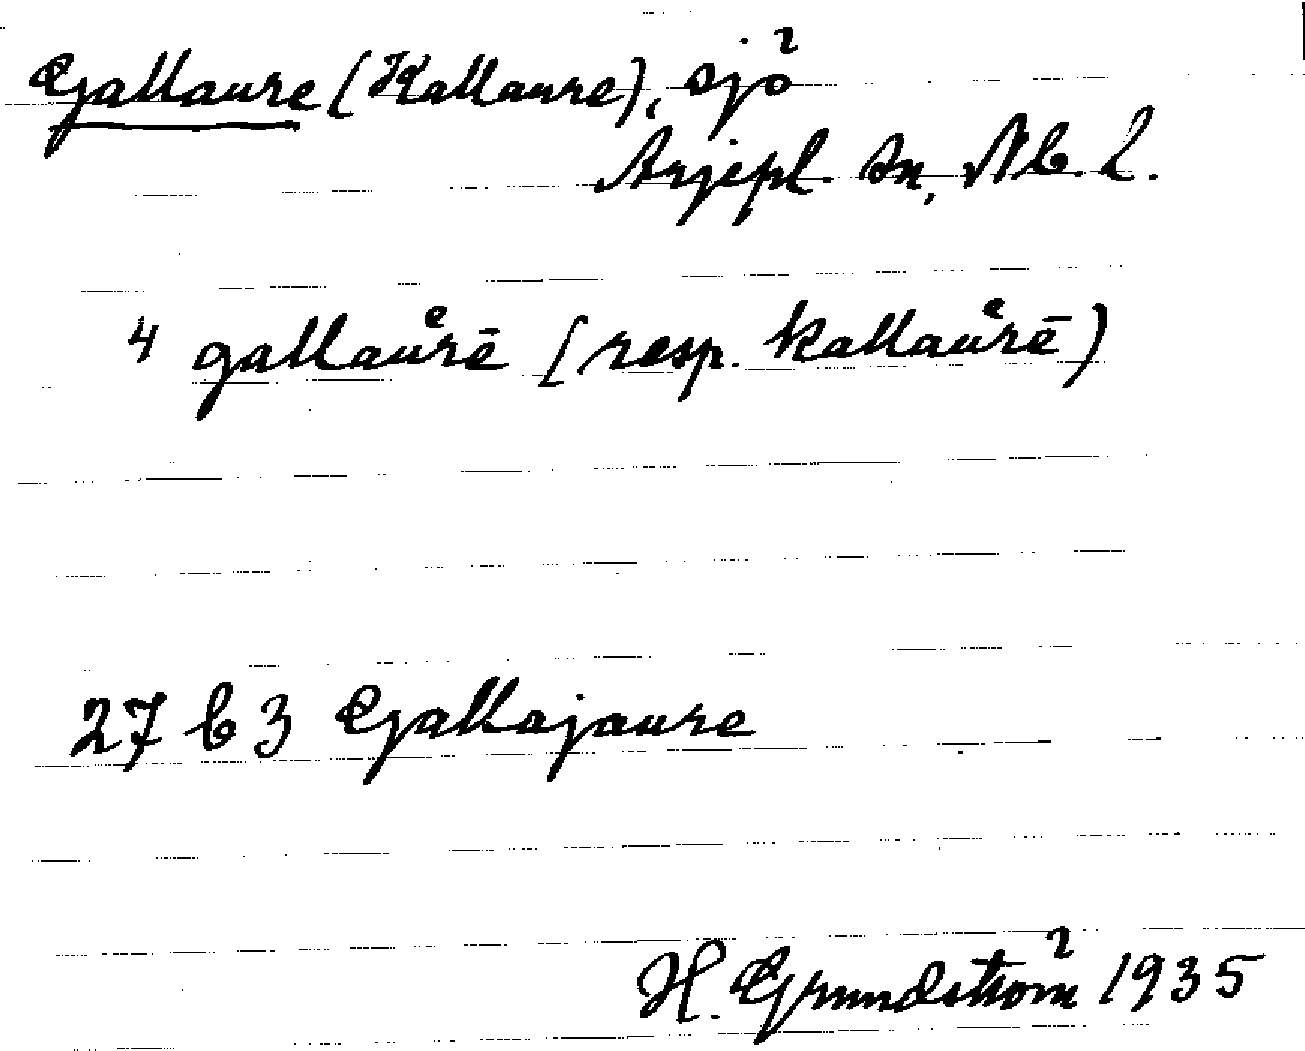 Gallaure (Kallaure), sjö
Arjepl. sn, Nb. L.
4 gallau̇ᵉrē (resp. kallau̇ᵉrē)
27 b 3 Gallajaure
H. Grundström 1935